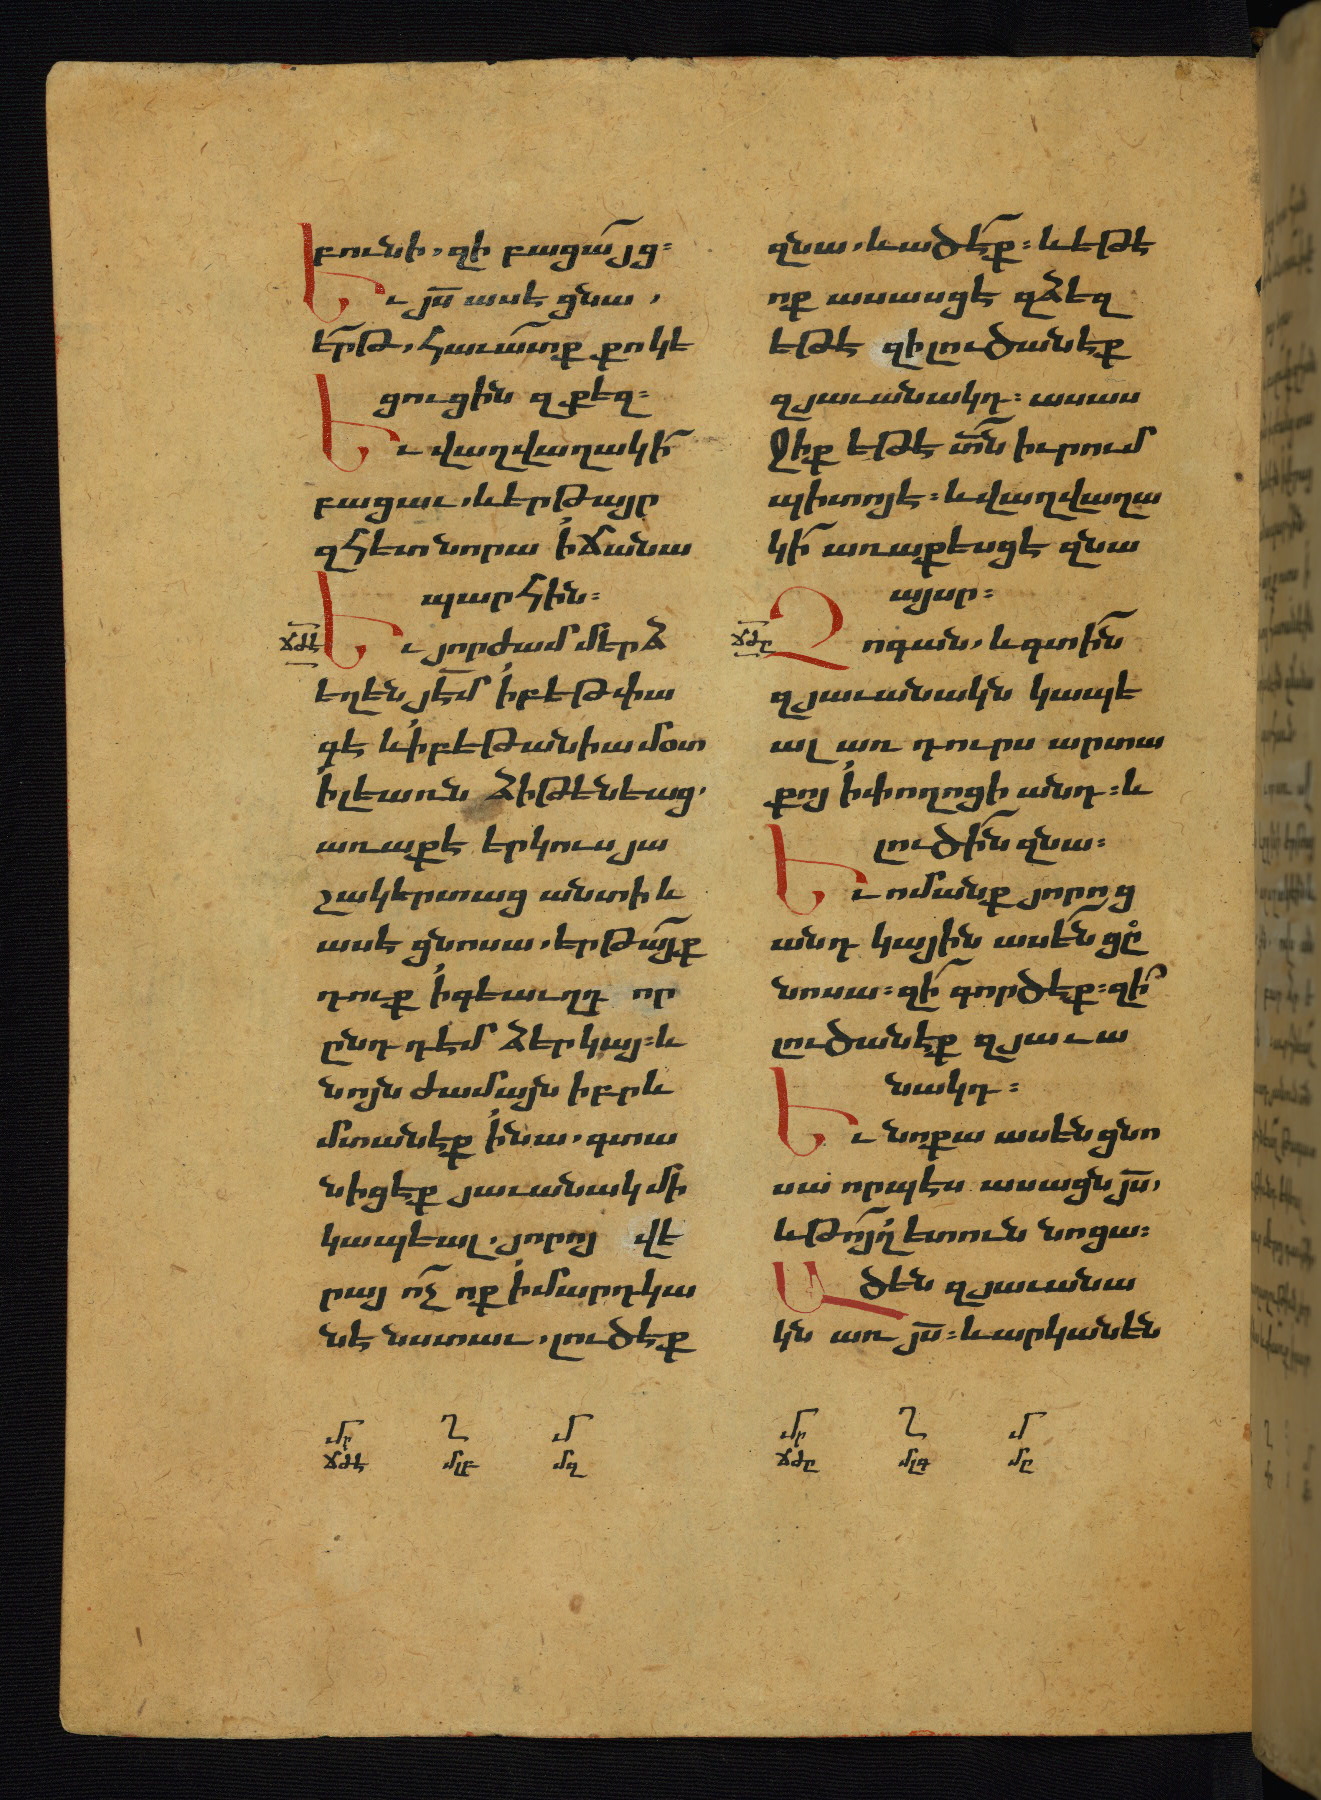 բունի, զի բացայց։
Եւ յս ասէ ցնա,
երթ, հաւատք քո կե
ցուցին զքեզ։
Եւ վաղվաղակի
բացաւ. և երթայր
զհետ նորա ի ճանա
պարհին։
ՃԺԷ
Եւ յորժամ մերձ
եղեն յէմ ի բեթփա
գէ և ի բեթանիա մօտ
ի լեառն ձիթենեաց.
առաքէ երկուս յա
շակերտաց անտի և
ասէ ցնոսա. երթայք
դուք ի գեաւղդ որ
ընդդէմ ձեր կայ։ և
նոյն ժամայն իբրև
մտանէք ի նա. գտա
նիցէք յաւանակ մի
կապեալ. յորոյ վե
րայ ոչ ոք ի մարդկա
նէ նստաւ. լուծէք
զնա. և ածէք։ և եթէ
ոք ասասցէ զձեզ
եթէ զի լուծանէք
զյաւանակդ։ ասաս
ջիք եթէ տն իւրում
պիտոյ է։ և վաղվաղա
կի առաքեսցէ զնա
այսր։
ՃԺԸ
Չոգան. և գտին
զյաւանակն կապե
ալ առ դուրս արտա
քոյ ի փողոցի անդ։ և
լուծին զնա։
Եւ ոմանք յորոց
անդ կային ասեն ցը
նոսա։ զի գործէք։ զի
լուծանէք զյաւա
նակդ։
Եւ նոքա ասեն ցնո
սա որպէս ասացն յս,
և թոյլ ետուն նոցա։
Ածեն զյաւանա
կն առ յս։ և արկանեն
մր ղ մ
ճժէ մլբ մզ
մր ղ մ
ճժը մլգ մը